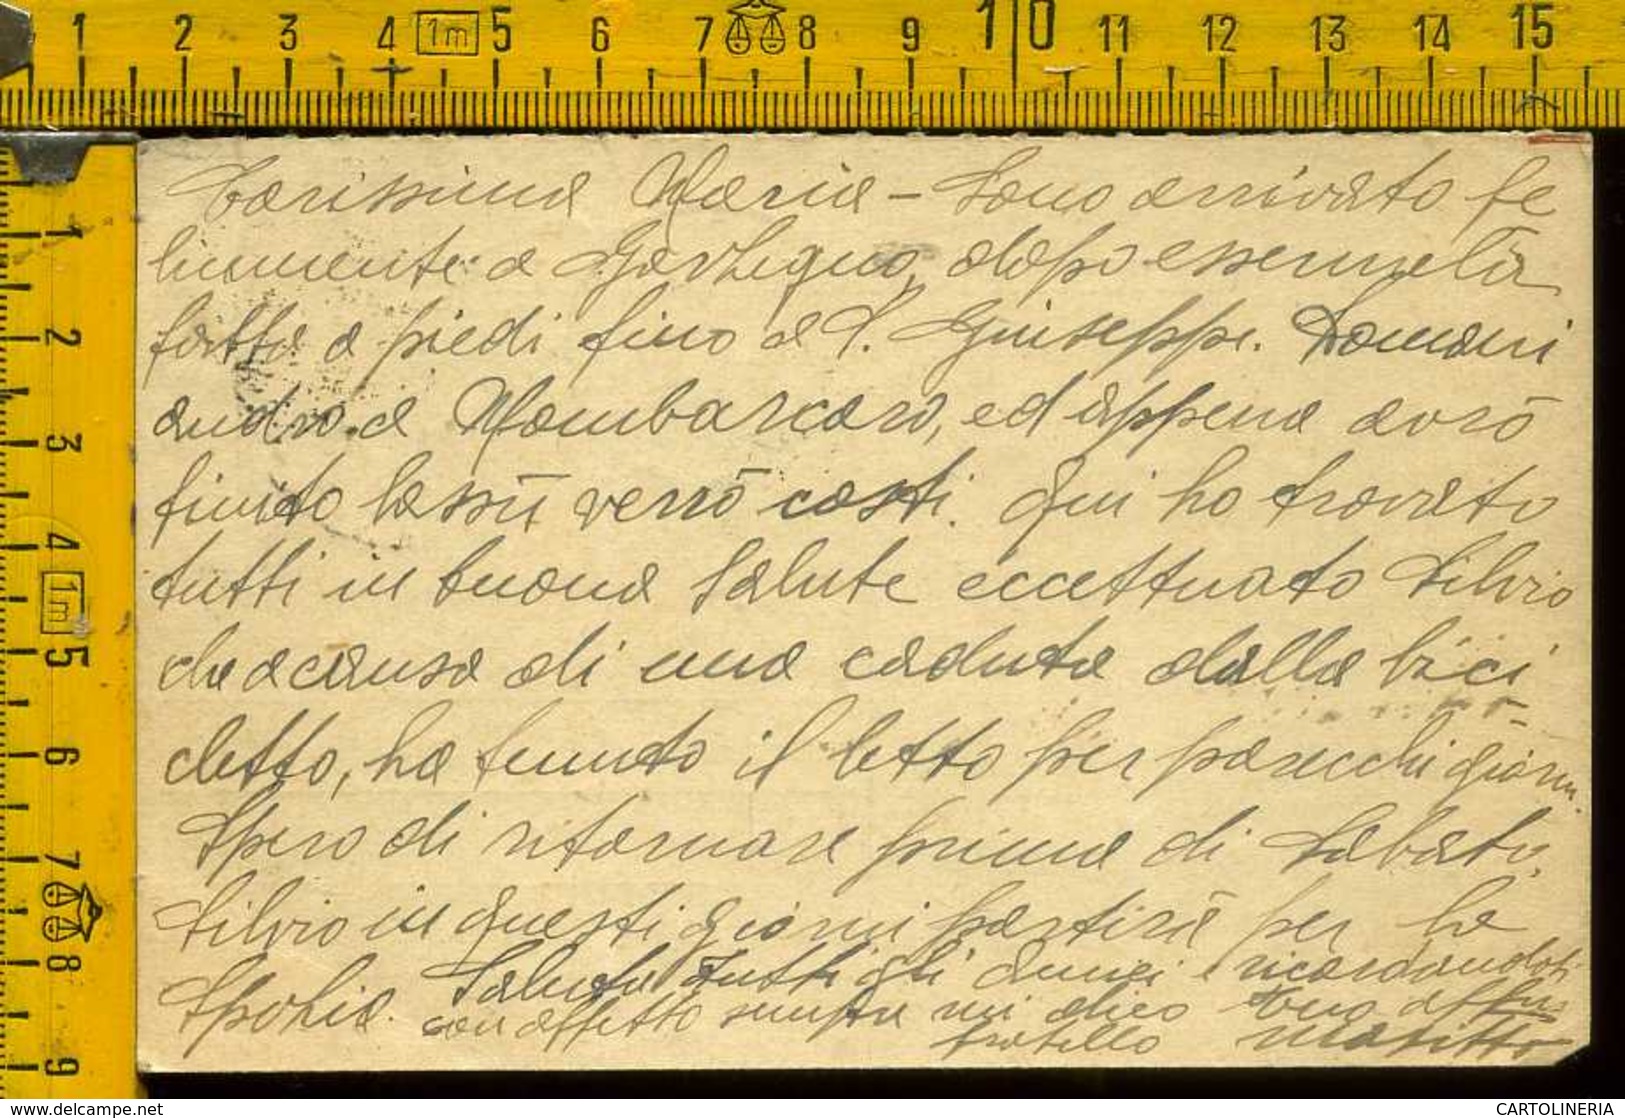 1 2 3 4 1m 5 6 7 8 9 10 11 12 13 14 15
1 2 3 4 1m 5 6 7 8 9
Carissima Maria – Sono arrivato fe
licemente a Garessio, dopo essermela
fatta a piedi fino a S. Giuseppe. Domani
andrò a Mombarcaro, ed appena avrò
finito lassù verrò costì. Qui ho trovato
tutti in buona salute eccettuato Silvio
che a causa di una caduta dalla bici
cletta, ha tenuto il letto per parecchi giorni.
Spero di ritornare prima di Sabato.
Silvio in questi giorni partirà per la
Spezia. Saluta tutti gli amici ricordandoti
con affetto sempre mi dico tuo aff.mo
fratello
www.delcampe.net
CARTOLINERIA